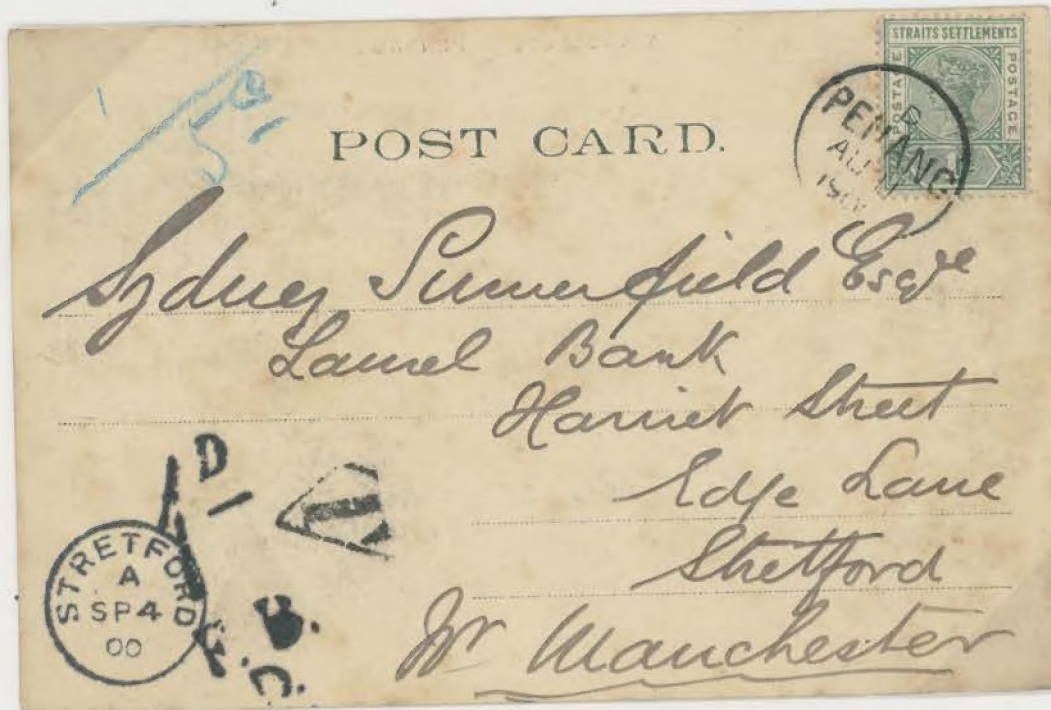 STRAITS SETTLEMENTS
POSTAGE
POSTAGE
5
POST CARD.
PENANG
Sydney Summerfield Esqre
Laurel Bank
Harriet Street
Edge Lane
Stretford
Nr Manchester
D
STRETFORD
A
SP 4
00